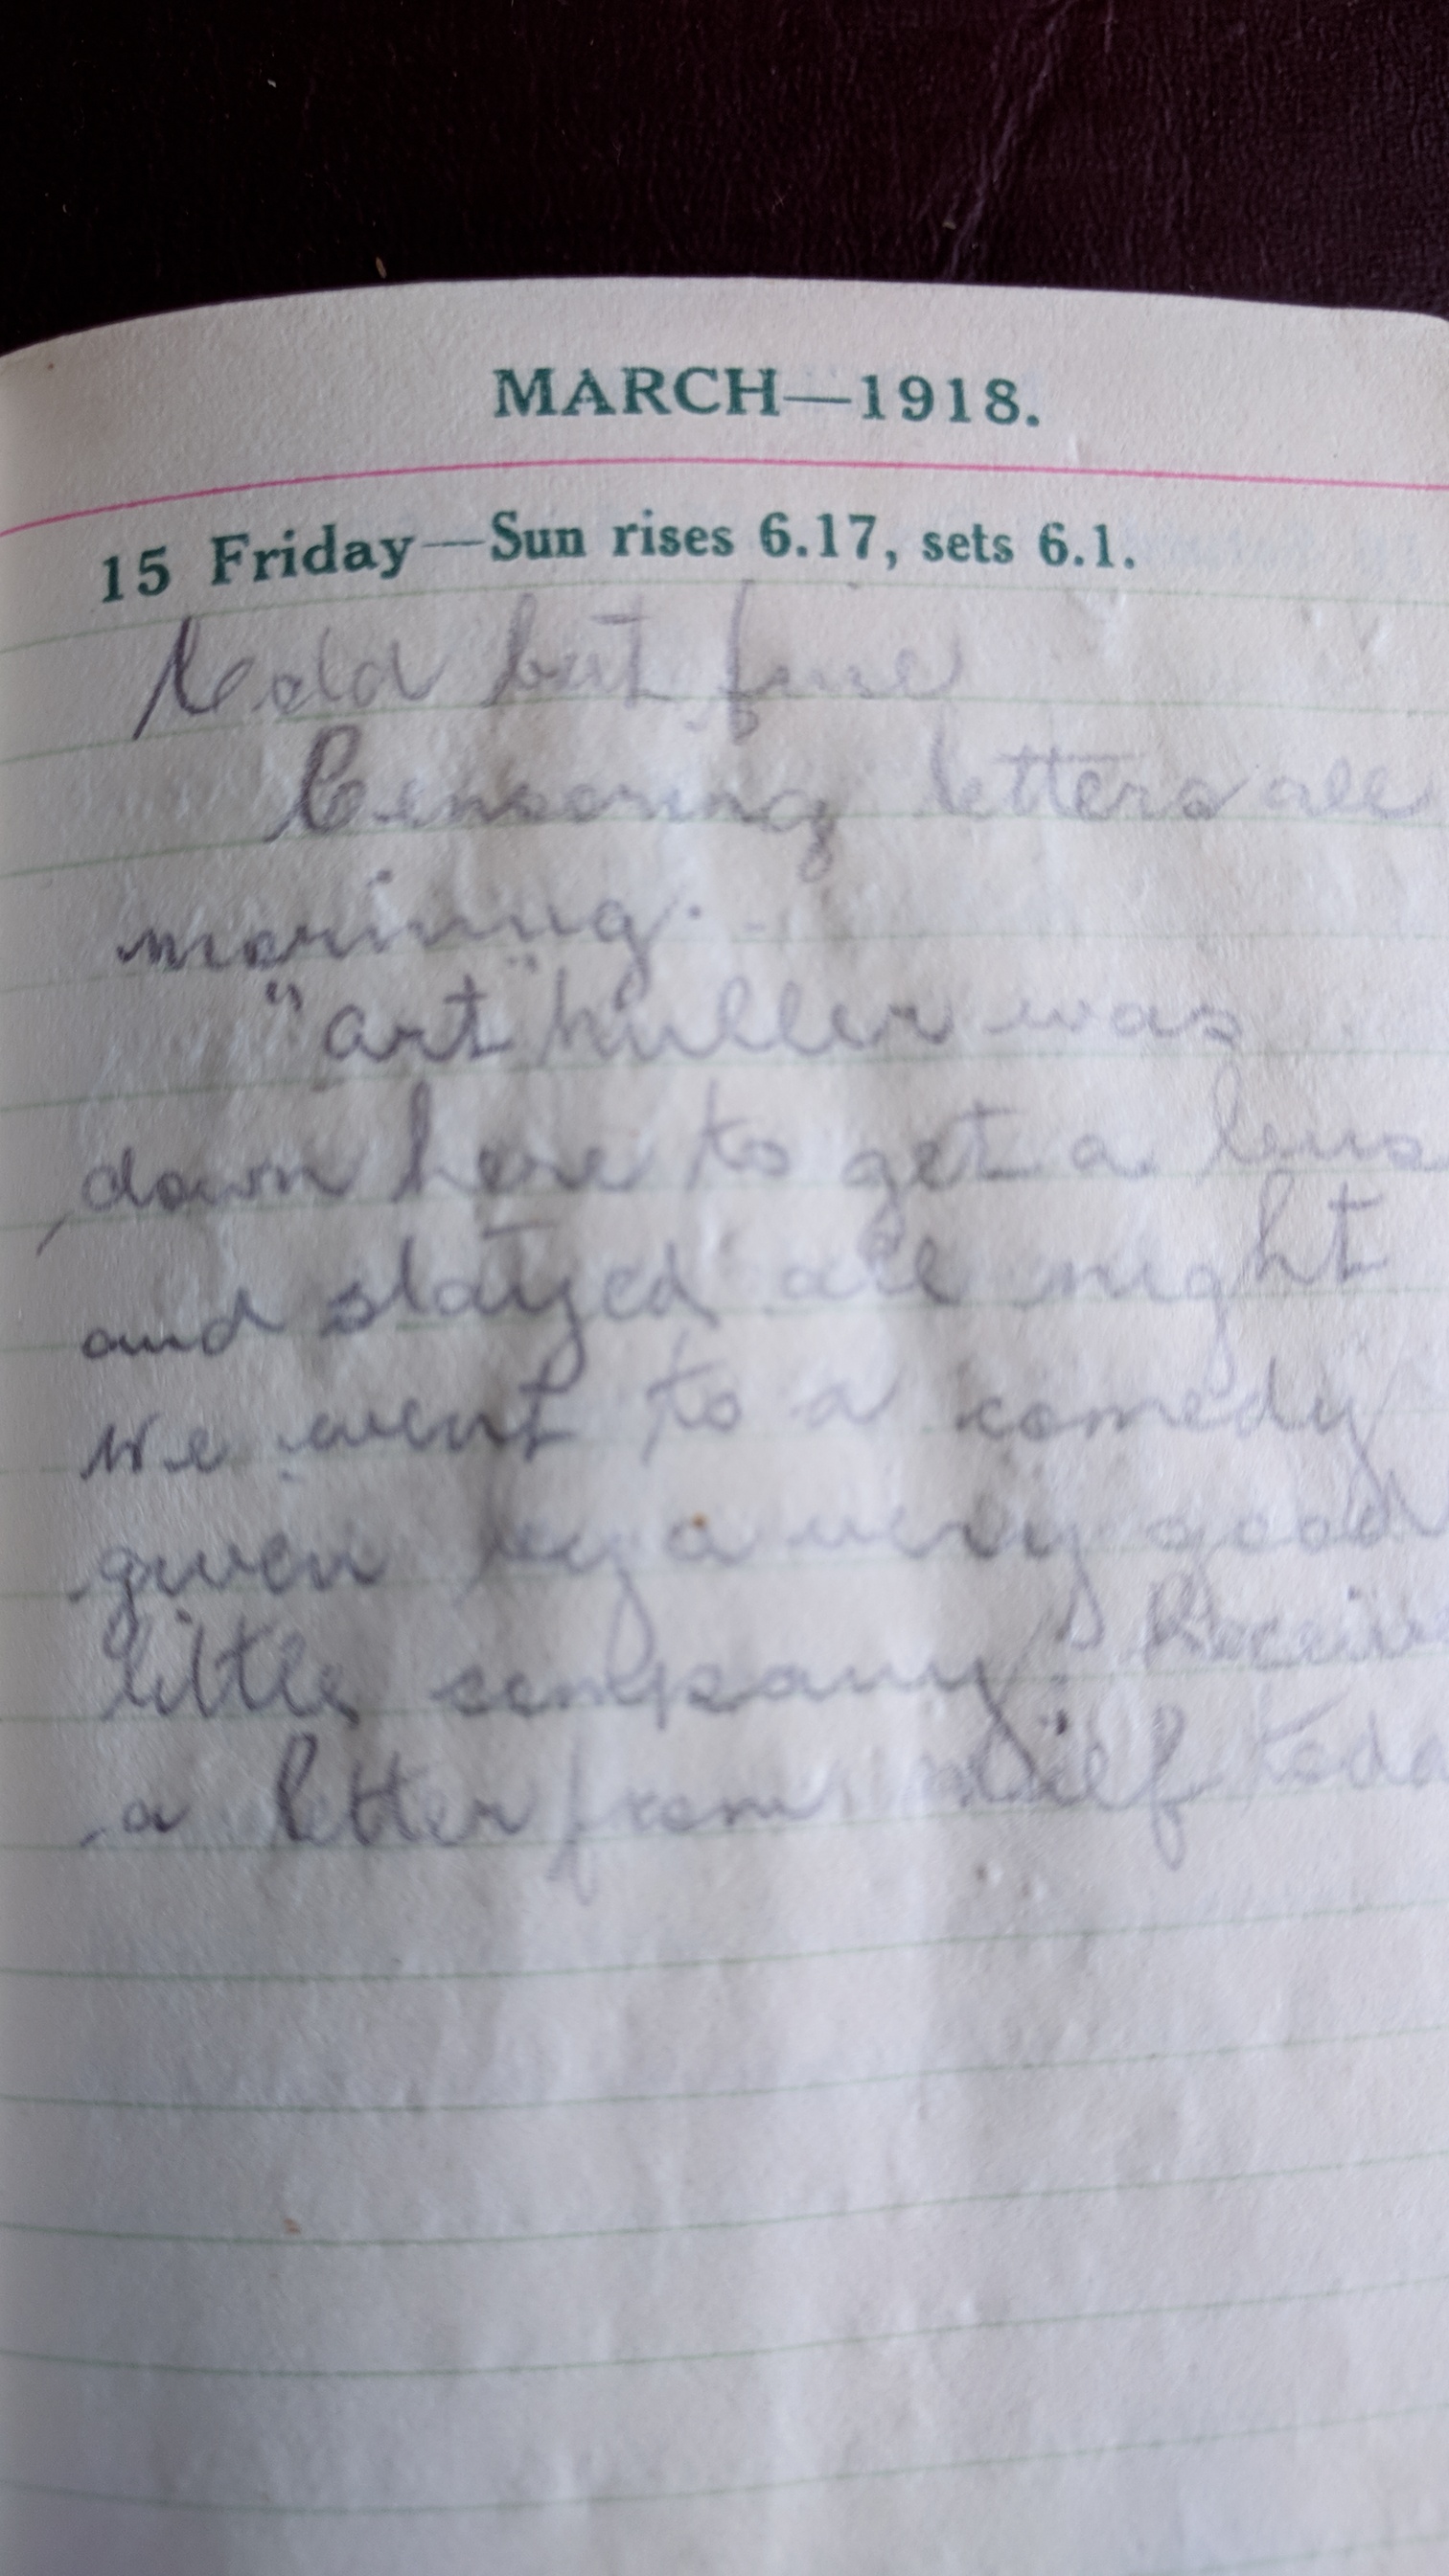 MARCH—1918.
15 Friday—Sun rises 6.17, sets 6.1.
Cold but fine
Censoring letters all
morning.
"Art" was
down here to get a lens
and stayed all night
We went to a comedy
given by a very good
little company.
a letter from today